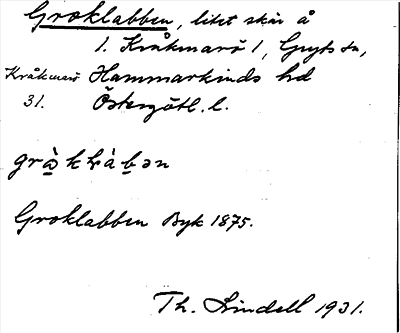 Groklabben, litet skär å
1. Kråkmarö 1, Gryts sn,
Kråkmarö Hammarkinds hd
31. Östergötl. l.
Groklabben Byk 1875.
Th. Lindell 1931.